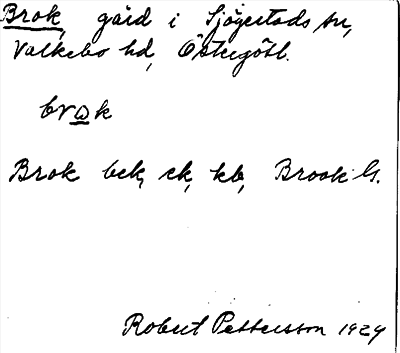 Brok, gård i Sjögestads sn,
Valkebo hd, Östergötl.
brok
Brok bek, ek, kb, Brook G.
Robert Pettersson 1929